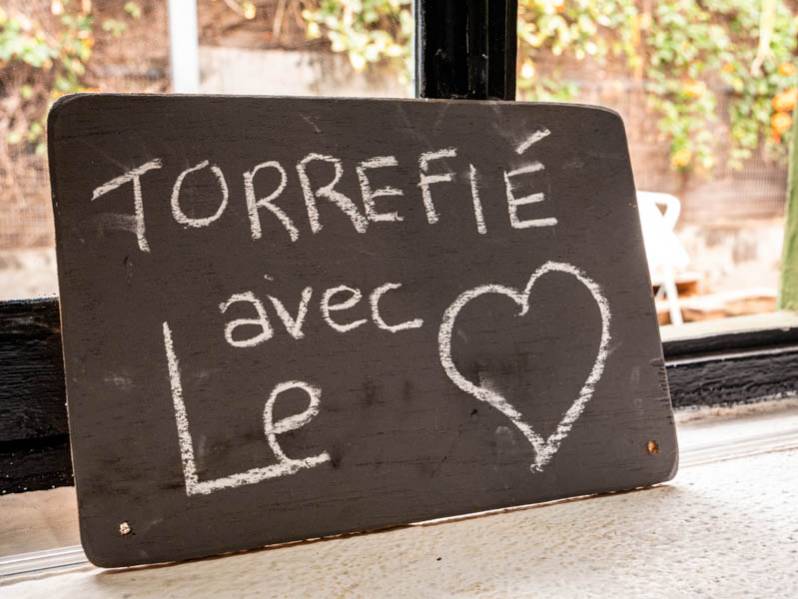 TORREFIÉ
avec
Le ♡